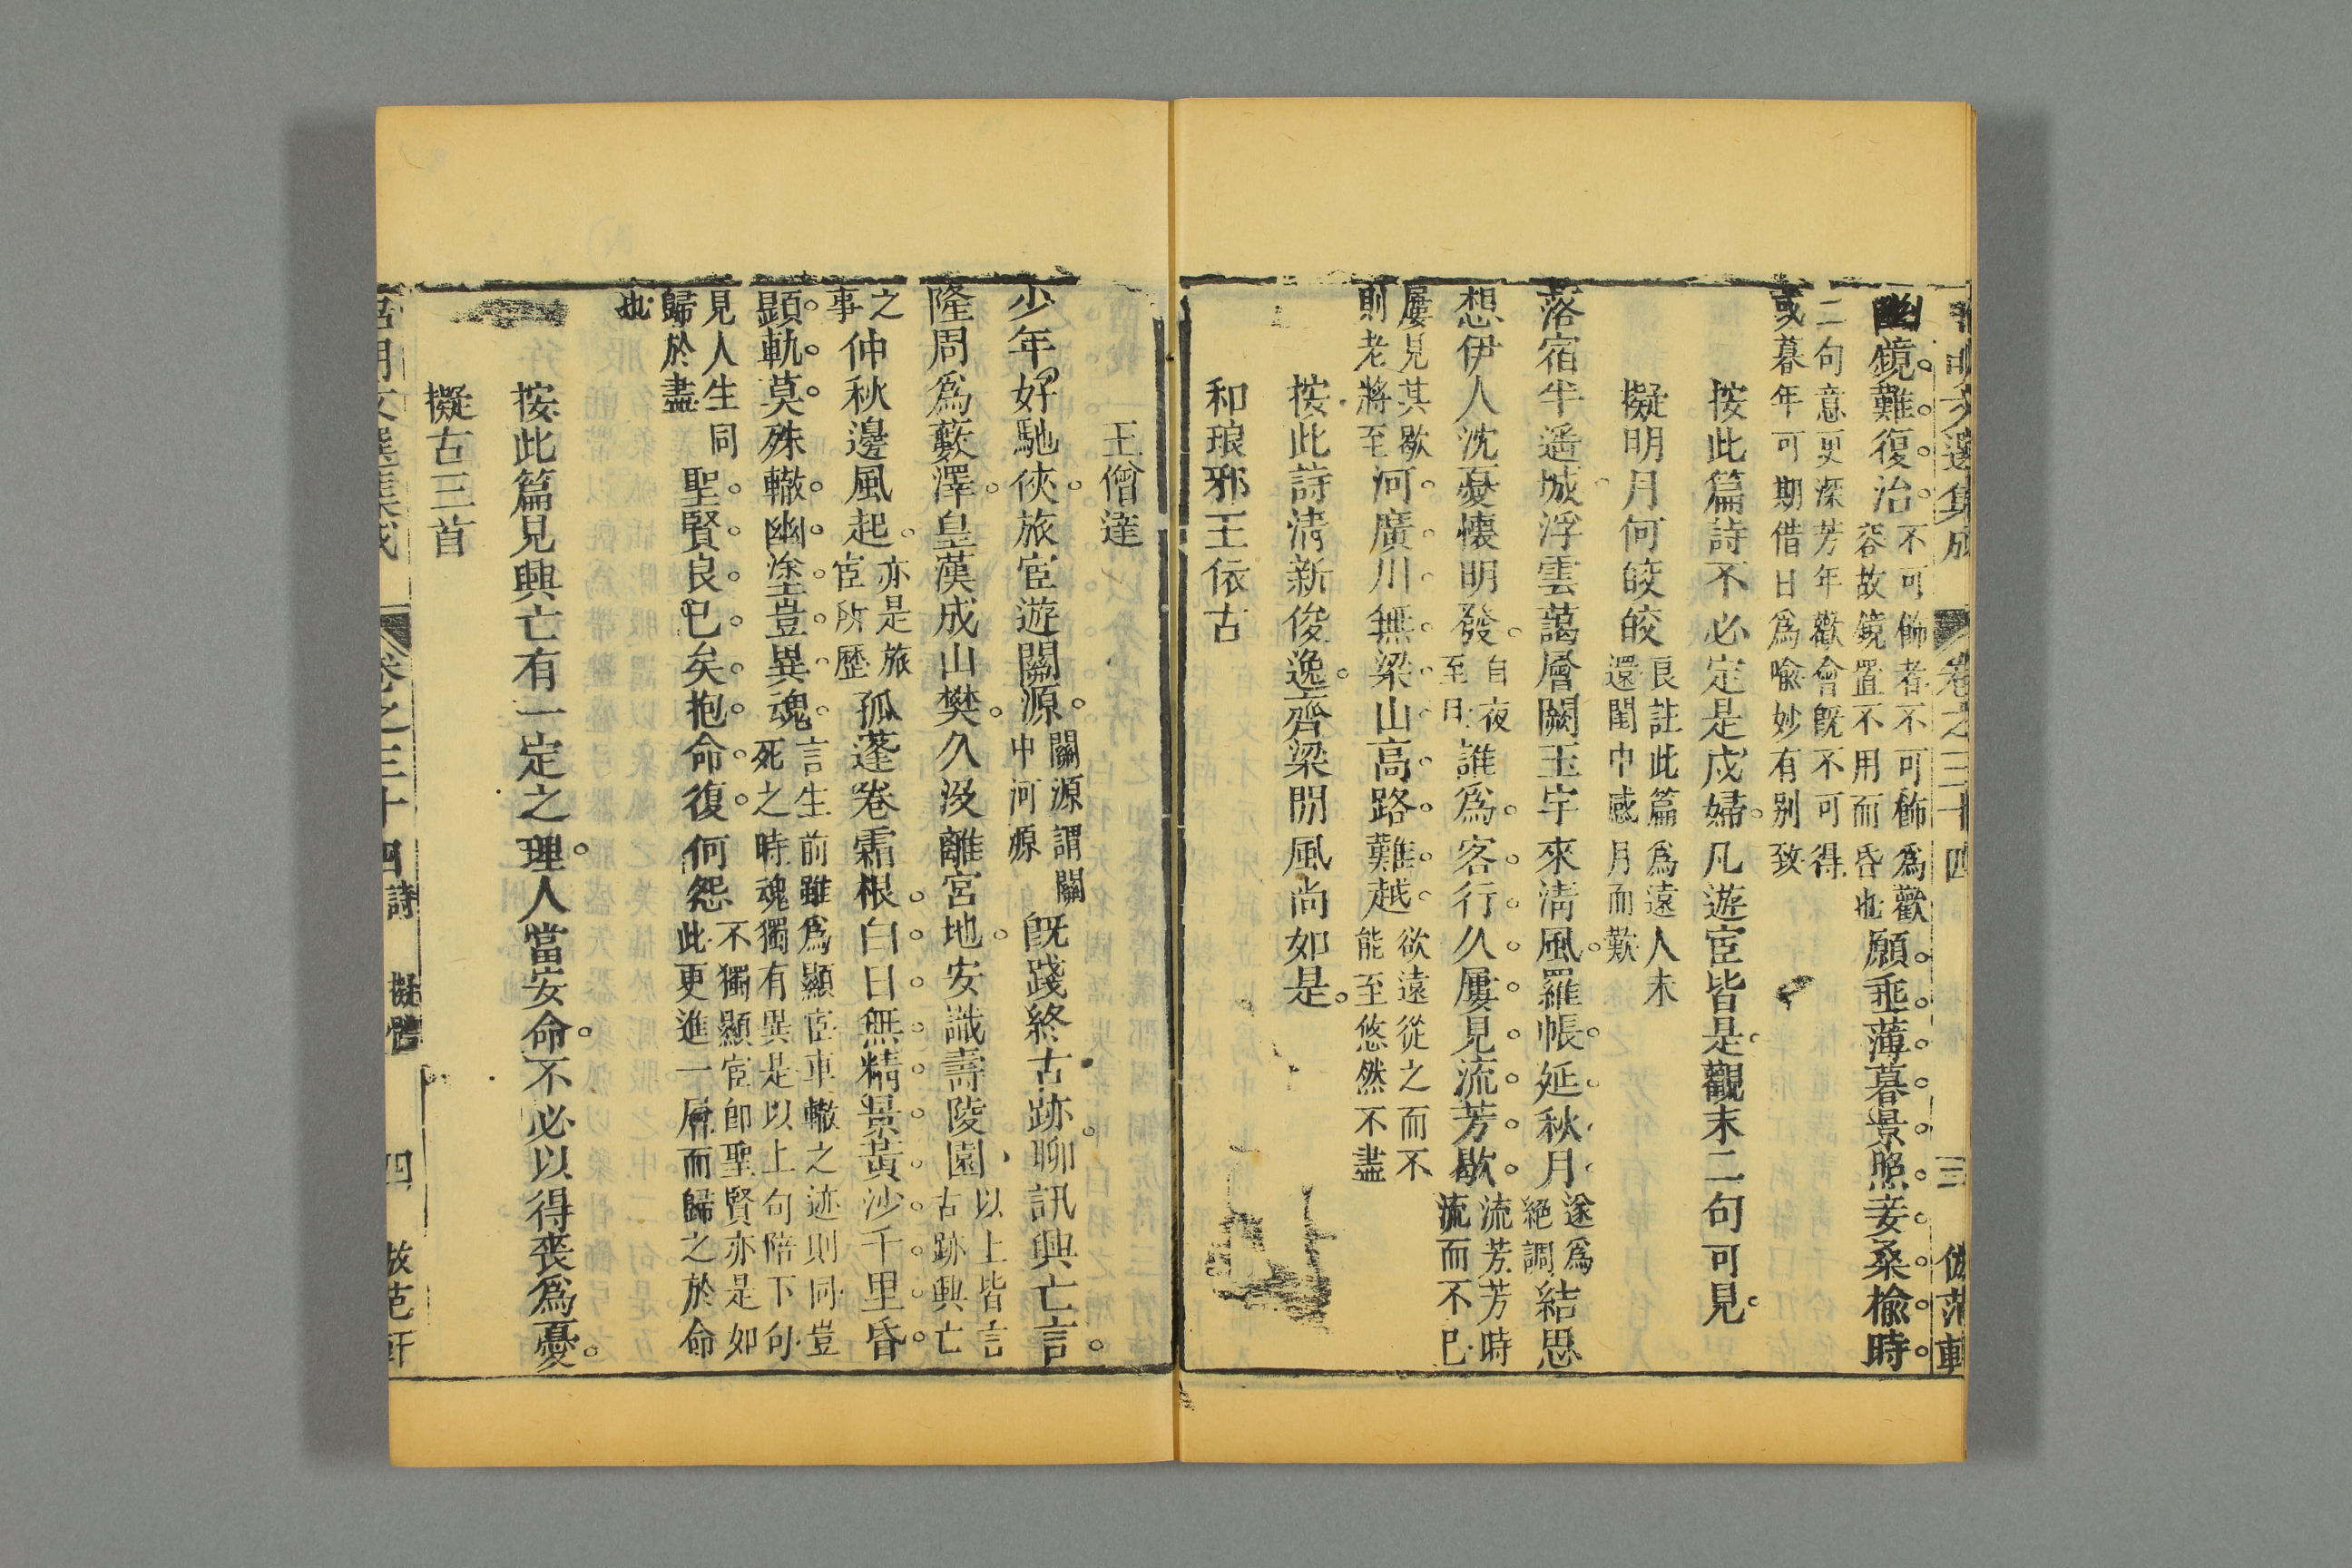 昭明文選集成 卷之三十四 三 倣范軒
幽鏡難復治不可飾者不可飾爲歡容故鏡置不用而昏也願垂薄暮景照妾桑榆時
二句意更深芳年歡會旣不可得或暮年可期借日爲喻妙有别致
按此篇詩不必定是戍婦凡遊宦皆是觀末二句可見
擬明月何皎皎良註此篇爲遠人未還閨中感月而歎
落宿半遥城浮雲藹層闕玉宇來清風羅帳延秋月遂爲絕調結思
想伊人沈憂懷明發自夜至旦誰爲客行久屢見流芳歇流芳芳時流而不已
屢見其歇則老將至河廣川無梁山高路難越欲遠從之而不能至悠然不盡
按此詩清新俊逸齊梁間風尚如是
和琅邪王依古
王僧達
少年好馳俠旅宦遊關源關源謂關中河源旣踐終古跡聊訊興亡言
隆周爲藪澤皇漢成山樊久没離宮地安識壽陵園以上皆言古跡興亡
之事仲秋邊風起亦是旅宦所歷孤蓬卷霜根白日無精景黃沙千里昏
顯軌莫殊轍幽塗豈異魂言生前雖爲顯宦車轍之迹則同豈死之時魂獨有異是以上句陪下句
見人生同歸於盡聖賢良已矣抱命復何怨不獨顯宦卽聖賢亦是如此更進一層而歸之於命
也
按此篇見興亡有一定之理人當安命不必以得喪爲憂
擬古三首
昭明文選集成 卷之三十四 詩 擬體 四 倣范軒